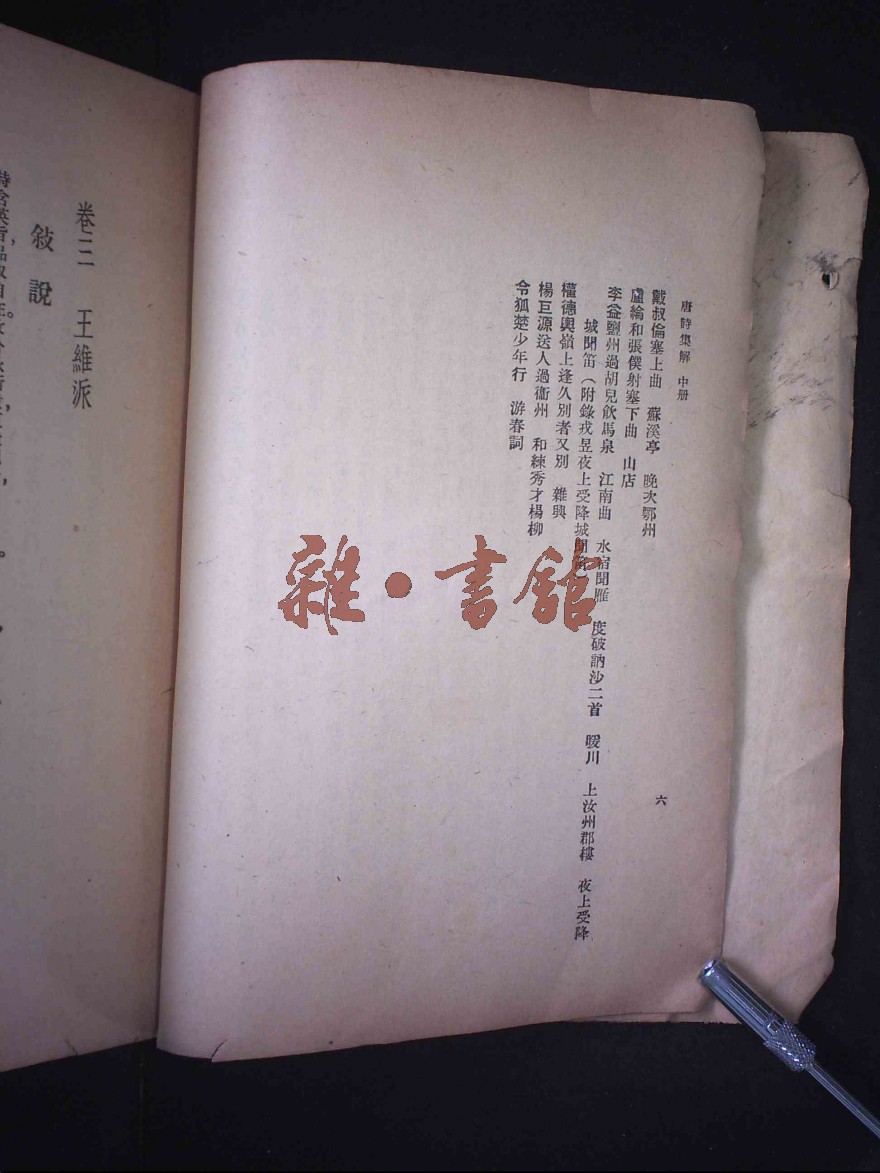 唐詩集解 中册
六
戴叔倫塞上曲 蘇溪亭 晚次鄂州
盧綸和張僕射塞下曲 山店
李益鹽州過胡兒飲馬泉 江南曲 水宿聞雁 度破訥沙二首 暖川 上汝州郡樓 夜上受降
城聞笛（附錄戎昱夜上受降城聞笛）
權德輿嶺上逢久別者又別 雜興
楊巨源送人過衞州 和練秀才楊柳
令狐楚少年行 游春詞
卷三 王維派
敍說
雜·書館